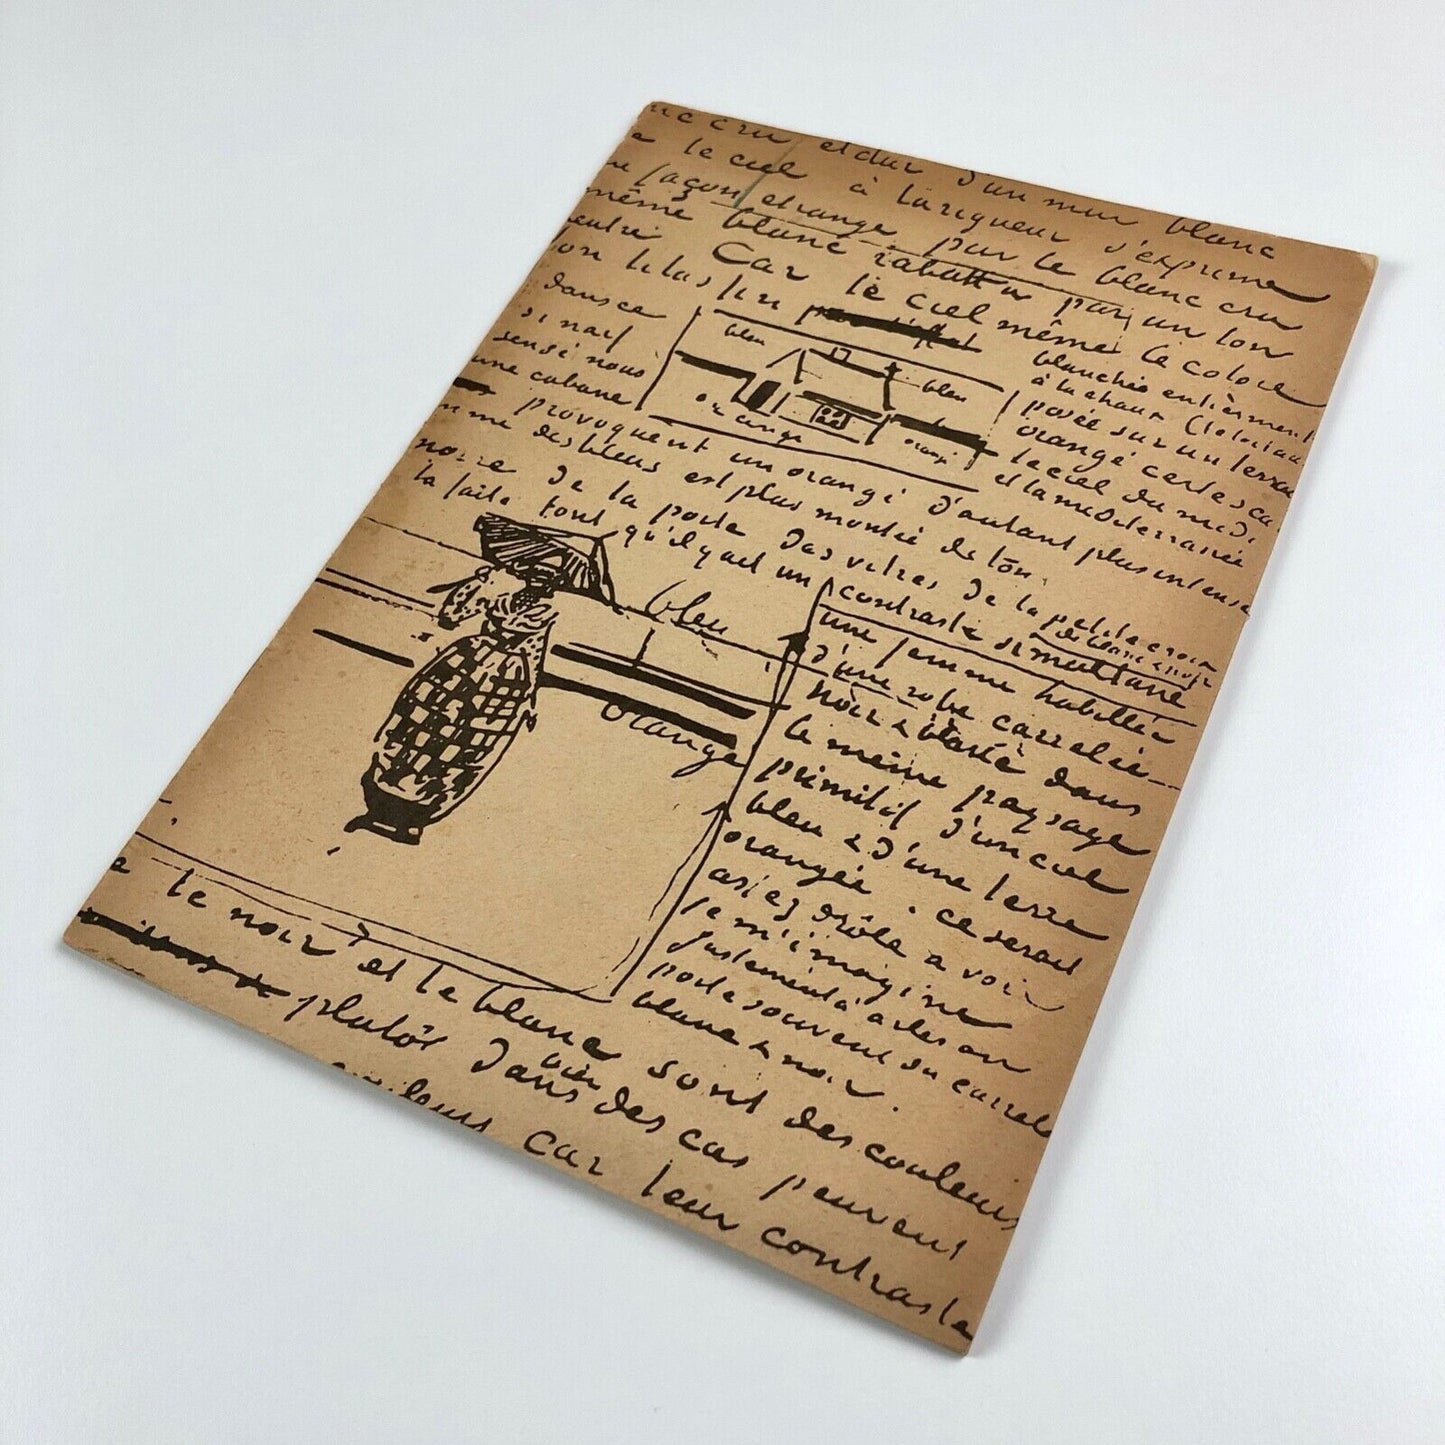 cru et dur d'un mur blanc
le ciel à la rigueur s'exprime
façon étrange par le blanc cru
même blanc rabattu par un ton
neutre. Car le ciel même le colore
ton lilas fin
dans ce
si naif
sensé nous
une cabane
bleu
bleu
orange
orangé
blanchie entièrement
à la chaux (le toit au
posée sur un terrain
orangé certes ca
le ciel du midi
et la mediterranée
provoquent un orangé d'autant plus intense
des bleus est plus montée de ton.
noire de la porte des vitres de la petite croix
la faîte font qu'il y ait un
contraste simultané
de blanc & noir
bleu
orange
une femme habillée
d'une robe carrelée
noir & blanc dans
le même paysage
primitif d'un ciel
bleu & d'une terre
orangée. ce serait
assez drôle a voir
je m'imagine
Justement à Arles on
porte souvent du carrelé
blanc & noir.
le noir et le blanc sont des couleurs
plutôt dans bien des cas peuvent
couleurs car leur contraste